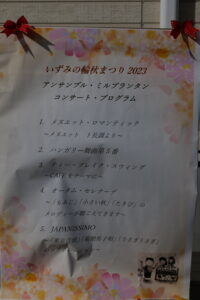 いずみの輪秋まつり 2023
アンサンブル・ミルプランタン
コンサート・プログラム
1. メヌエット・ロマンティック
～メヌエット ト長調より～
2. ハンガリー舞曲第5番
3. ティー・ブレイク・スウィング
4. オータム・セレナーデ
～「もみじ」「小さい秋」「たきび」の
メロディーが聴こえてきます～
5. JAPANISSIMO